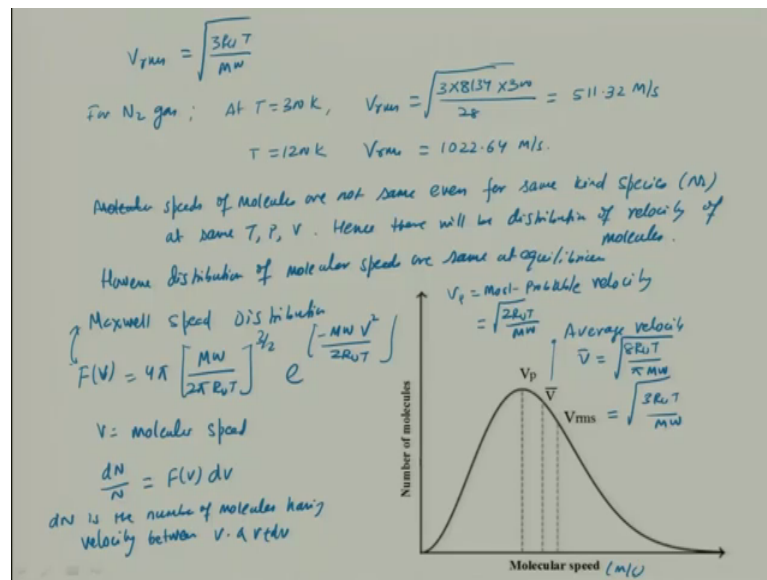 Vrms = √(3RuT/MW)
For N2 gas ; At T = 300 K, Vrms = √(3×8134×300/28) = 511.32 M/s
T = 1200 K Vrms = 1022.64 M/s.
Molecular speeds of Molecules are not same even for same kind species (N2)
at same T, P, V. Hence there will be distribution of velocity of
molecules.
However distribution of molecular speeds are same at equilibrium
Maxwell Speed Distribution
F(V) = 4π [MW/2πRuT]^3/2 e^[-MW V²/2RuT]
V = molecular speed
dN/N = F(V) dv
dN is the number of molecules having
velocity between v & v+dv
Vp = Most-Probable velocity
= √(2RuT/MW)
Average velocity
V̄ = √(8RuT/πMW)
Vp
V̄
Vrms = √(3RuT/MW)
Number of molecules
Molecular speed (m/s)